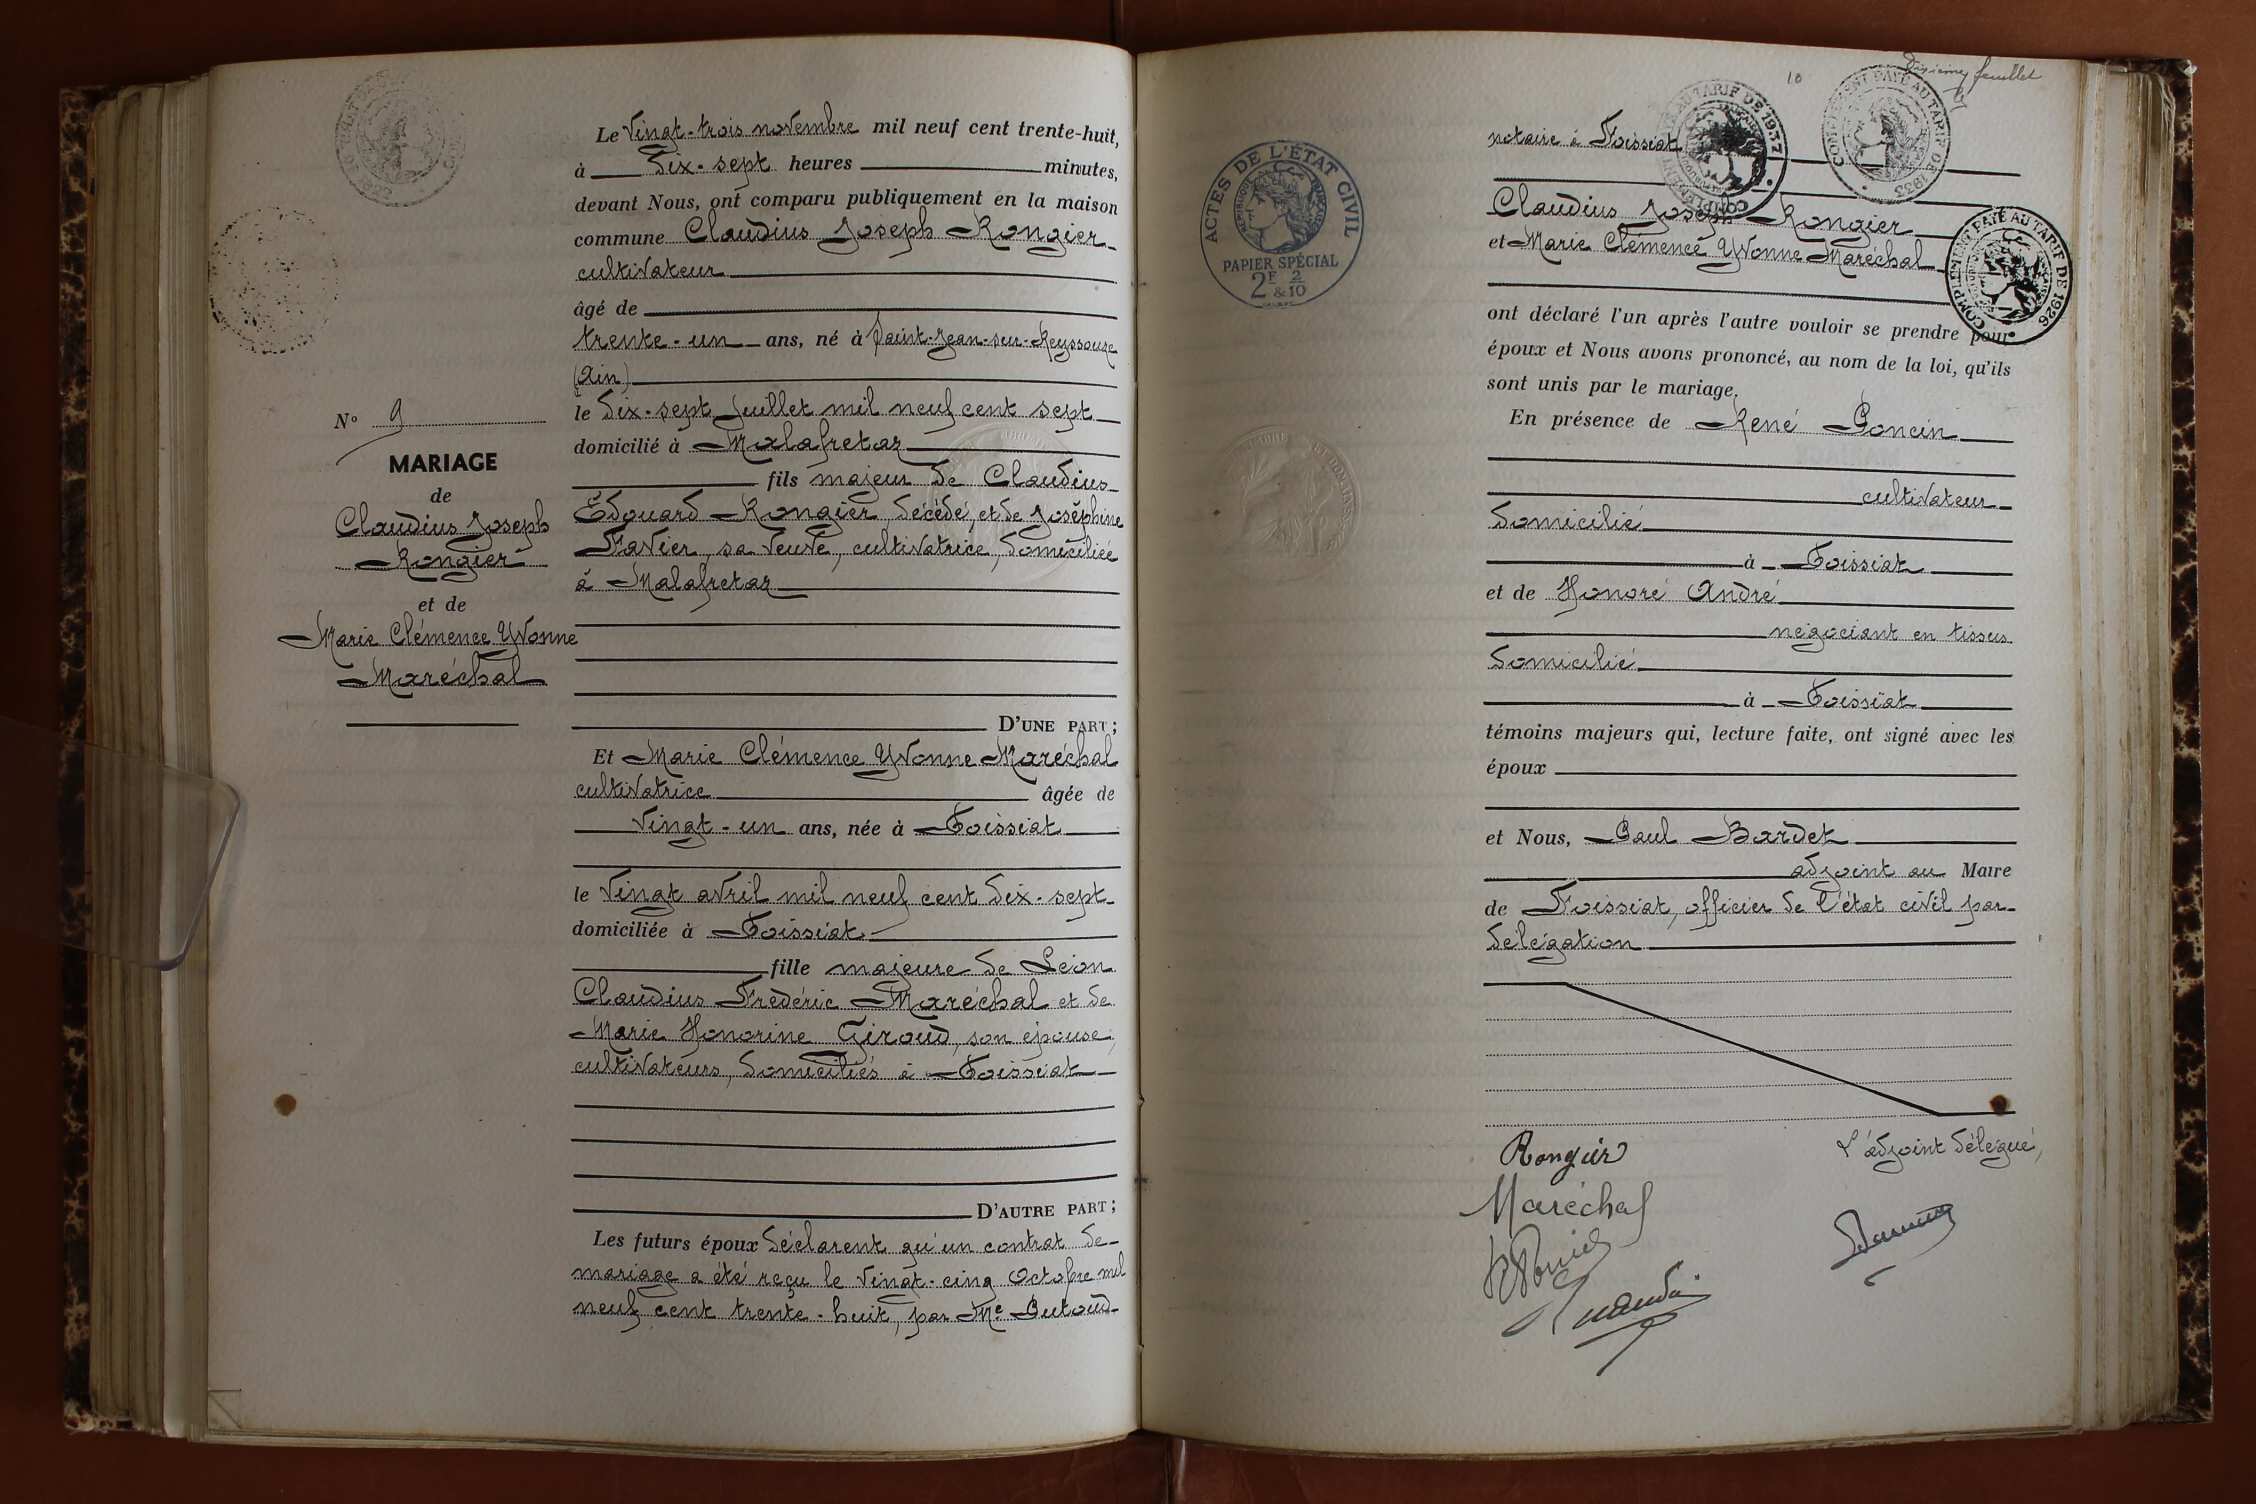 Le Vingt-trois novembre mil neuf cent trente-huit,
à Dix-sept heures minutes,
devant Nous, ont comparu publiquement en la maison
commune Claudius Joseph Rongier
cultivateur
âgé de
trente-un ans, né à Saint-Jean-sur-Reyssouze
(Ain)
le Dix-sept Juillet mil neuf cent sept
domicilié à Malafretaz
fils majeur de Claudius
Edouard Rongier, décédé, et de Joséphine
Favier, sa veuve, cultivatrice, domiciliée
à Malafretaz
D'UNE PART;
Et Marie Clémence Yvonne Maréchal
cultivatrice âgée de
Vingt-un ans, née à Foissiat
le Vingt avril mil neuf cent dix-sept
domiciliée à Foissiat
fille majeure de Léon
Claudius Frédéric Maréchal et de
Marie Honorine Giroud, son épouse,
cultivateurs, domiciliés à Foissiat
D'AUTRE PART;
Les futurs époux déclarent qu'un contrat de
mariage a été reçu le vingt-cinq Octobre mil
neuf cent trente-huit, par Me Butoud
N° 9
MARIAGE
de
Claudius Joseph
Rongier
et de
Marie Clémence Yvonne
Maréchal
10
feuillet
notaire à Foissiat
Claudius Joseph Rongier
et Marie Clémence Yvonne Maréchal
ont déclaré l'un après l'autre vouloir se prendre pour
époux et Nous avons prononcé, au nom de la loi, qu'ils
sont unis par le mariage.
En présence de René Poncin
cultivateur
domicilié
à Foissiat
et de Honoré André
négociant en tissus
domicilié
à Foissiat
témoins majeurs qui, lecture faite, ont signé avec les
époux
et Nous, Paul Bardet
adjoint au Maire
de Foissiat, officier de l'état civil par
délégation
Rongier
L'adjoint délégué,
Maréchal
ACTES DE L'ÉTAT CIVIL
PAPIER SPÉCIAL
2F & 2/10
COMPLÉMENT PAYÉ AU TARIF DE 1937
COMPLÉMENT PAYÉ AU TARIF DE 1933
COMPLÉMENT PAYÉ AU TARIF DE 1926